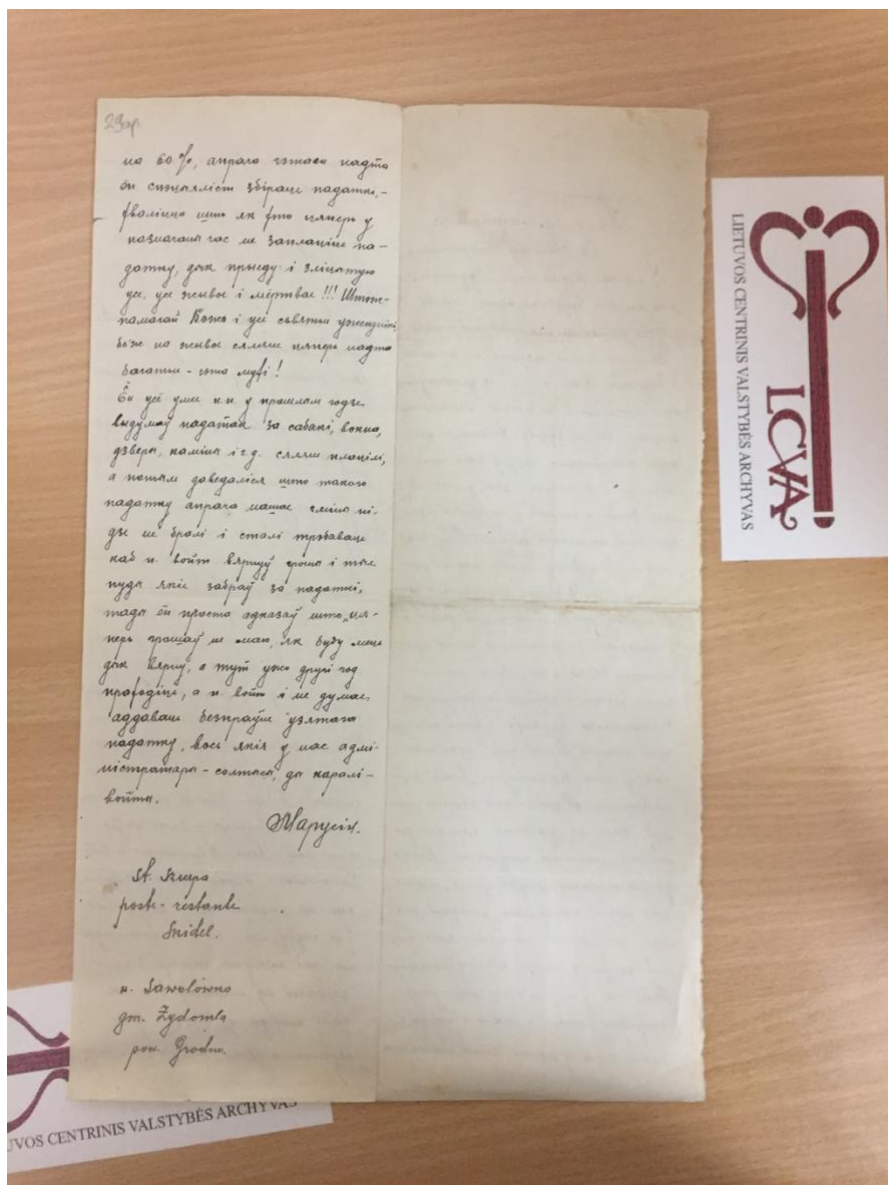 29ар
на 60%, апрача гэтаго надта
ён спэцыяліст збіраць падаткі,-
фваліцца што як фто цяпер у
назначаны час не заплаціць па-
датку, дык прыеду і зліцытую
усе, усе жывое і мёртвае!!! Штож-
памагай Божэ і усе сьвятые
бо ж на жывое сяляне цяпер надта
багатые - гэта муфі!
Ён усё умее н.п. у прошлам годзе
выдумаў падатак за сабакі, вокна,
дзверы, каміны і г.д. сяляне плацілі,
а потым даведаліся што такого
падатку апрача нашае гміны ні-
дзе не бралі і сталі трэбаваць
каб п. войт вярнуў грошы і тые
пуды якіе забраў за падаткі,
тады ён проста адказаў што „ця-
пер грошаў не маю, як буду мець
дык вярну, а тут ужо другі год
прафодзіць, а п. войт і не думае
аддаваць безпраўне узятага
падатку, вось якія у нас адмі-
ністратары - солтысы, ды каралі-
войты.
Маруся.
St. Skupa
poste-restante
Skidel.
w. Sawolówno
gm. Żydomla
pow. Grodno.
LIETUVOS CENTRINIS VALSTYBĖS ARCHYVAS
LCVA
UVOS CENTRINIS VALSTYBĖS ARCHYVAS